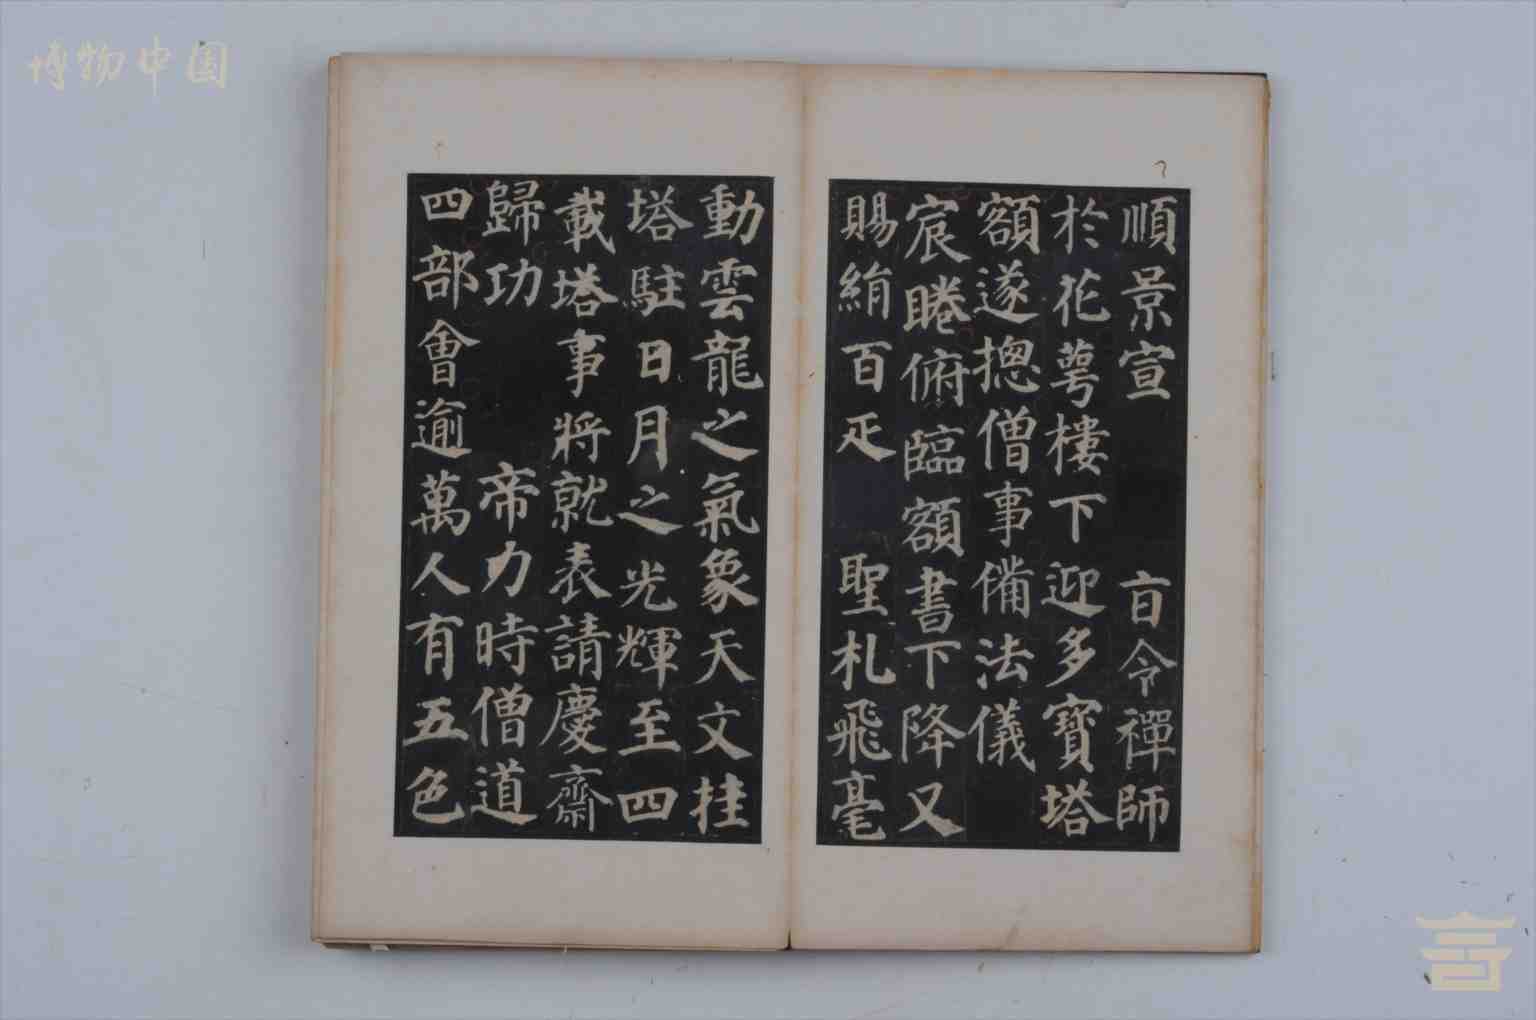 博物中国
順景宣 㫖令禪師
於花萼樓下迎多寶塔
額遂摠僧事備法儀
宸睠俯臨額書下降又
賜絹百疋 聖札飛毫
動雲龍之氣象天文挂
塔駐日月之光輝至四
載塔事將就表請慶齋
歸功 帝力時僧道
四部會逾萬人有五色